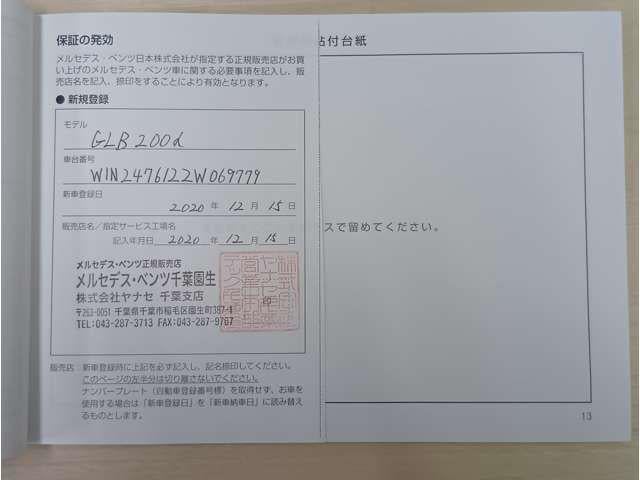 保証の発効
メルセデス・ベンツ日本株式会社が指定する正規販売店がお買
い上げのメルセデス・ベンツ車に関する必要事項を記入し、販
売店名を記入、捺印をすることにより有効となります。
● 新規登録
モデル
GLB 200d
車台番号
W1N2476122W069779
新車登録日
2020 年 12 月 15 日
販売店名／指定サービス工場名
記入年月日 2020 年 12 月 15 日
メルセデス・ベンツ正規販売店
メルセデス・ベンツ千葉園生
株式会社ヤナセ 千葉支店
〒263-0051 千葉県千葉市稲毛区園生町387-1
TEL:043-287-3713 FAX:043-287-9767
印
販売店：新車登録時に上記を必ず記入し、記名捺印してください。
このページの左半分は切り離さないでください。
ナンバープレート（自動車登録番号標）を取得せず、お車を
使用する場合は「新車登録日」を「新車納車日」に読み替え
るものとします。
貼付台紙
スで留めてください。
13